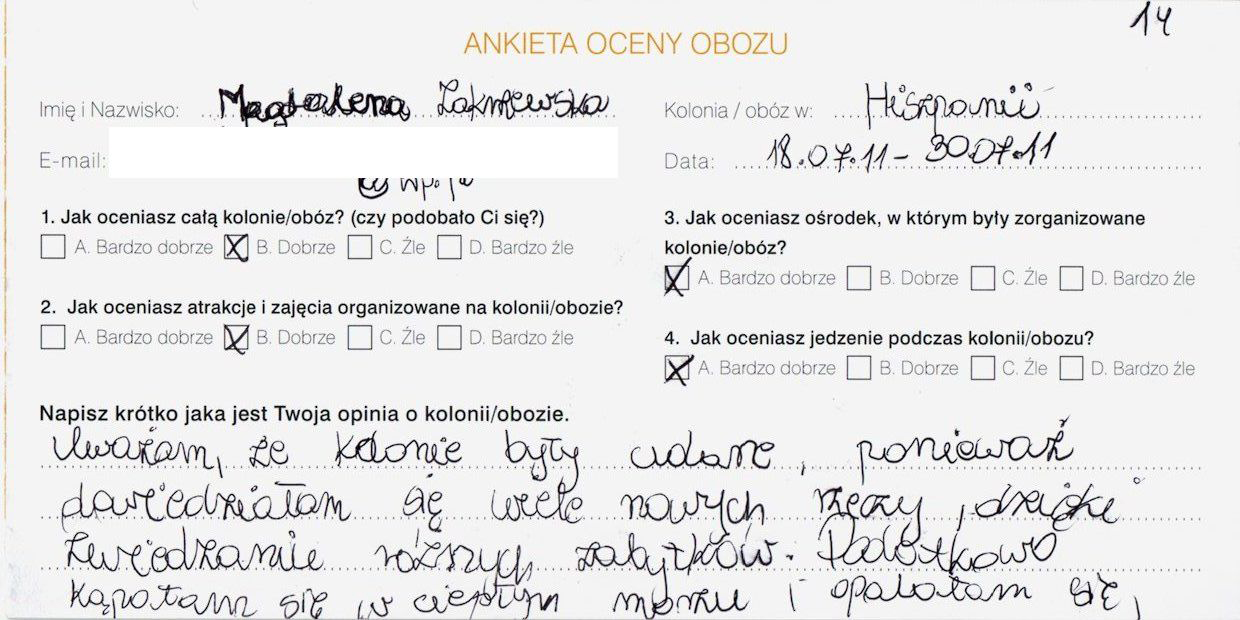 14
ANKIETA OCENY OBOZU
Imię i Nazwisko: Magdalena Zakrzewska
Kolonia / obóz w: Hiszpanii
E-mail:
Data: 18.07.11 - 30.07.11
1. Jak oceniasz całą kolonie/obóz? (czy podobało Ci się?)
A. Bardzo dobrze B. Dobrze C. Źle D. Bardzo źle
2. Jak oceniasz atrakcje i zajęcia organizowane na kolonii/obozie?
A. Bardzo dobrze B. Dobrze C. Źle D. Bardzo źle
3. Jak oceniasz ośrodek, w którym były zorganizowane
kolonie/obóz?
A. Bardzo dobrze B. Dobrze C. Źle D. Bardzo źle
4. Jak oceniasz jedzenie podczas kolonii/obozu?
A. Bardzo dobrze B. Dobrze C. Źle D. Bardzo źle
Napisz krótko jaka jest Twoja opinia o kolonii/obozie.
Uważam, że kolonie były udane, ponieważ
dowiedziałam się wiele nowych rzeczy, dzięki
zwiedzanie różnych zabytków. Dodatkowo
kąpałam się w ciepłym morzu i opalałam się,